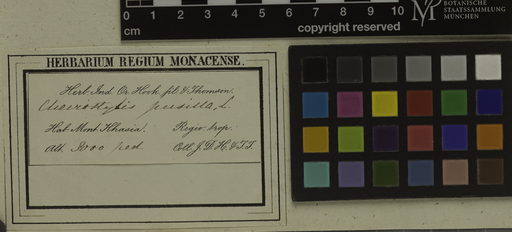 0 1 2 3 4 5 6 7 8 9 10
cm
copyright reserved
BOTANISCHE
STAATSSAMMLUNG
MÜNCHEN
HERBARIUM REGIUM MONACENSE.
Herb. Ind. Or. Hook. fil. & Thomson.
Cheirostylis pusilla, L.
Hab. Mont Khasia. Regio trop.
Alt. ped. Coll. J. D. H. & T. T.